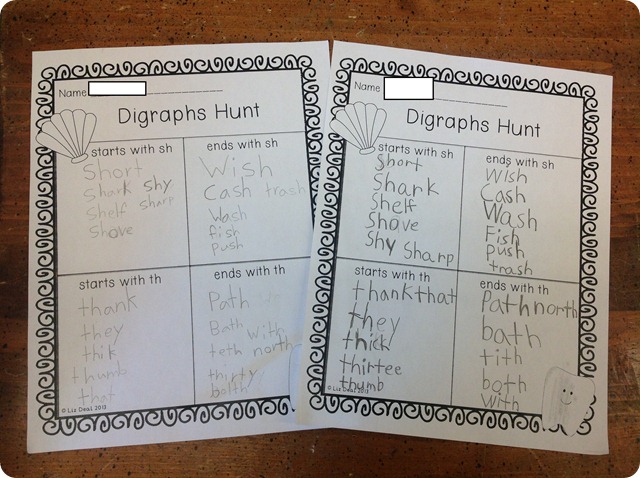 Name
Digraphs Hunt
starts with sh
Short
Shark shy
Shelf sharp
Shove
ends with sh
Wish
Cash trash
Wash
fish
push
starts with th
thank
they
thik
thumb
that
ends with th
Path
Bath
with
teth north
thirty
both
© Liz Deal 2013
Name
Digraphs Hunt
starts with sh
Short
Shark
Shelf
Shove
Shy Sharp
ends with sh
Wish
Cash
Wash
Fish
Push
trash
starts with th
thank that
they
thick
thirtee
thumb
ends with th
Path north
bath
tith
both
with
© Liz Deal 2013